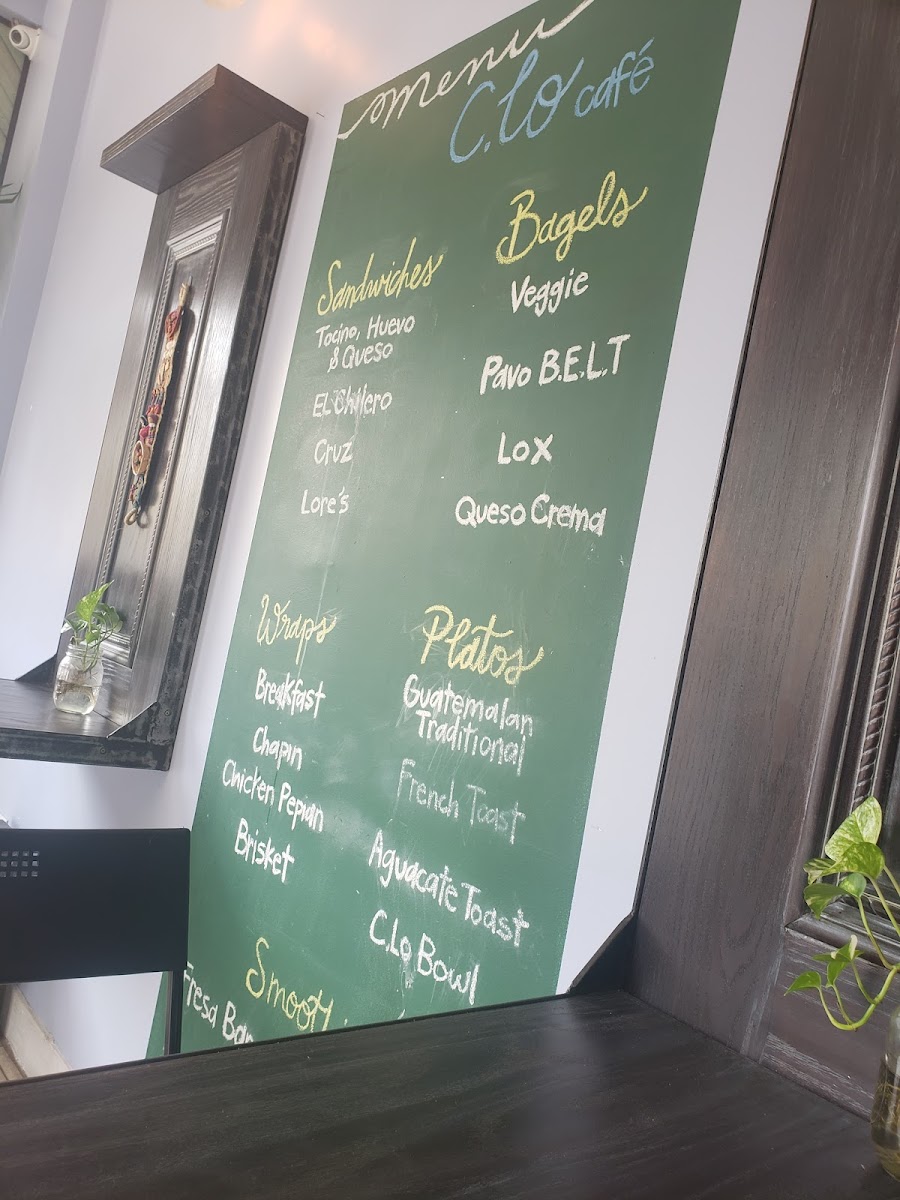 menu
C.Lo café
Sandwiches
Tocino, Huevo
& Queso
EL Chilero
Cruz
Lore's
Bagels
Veggie
Pavo B.E.L.T
Lox
Queso Crema
Wraps
Breakfast
Chapin
Chicken Pepian
Brisket
Platos
Guatemalan
Traditional
French Toast
Aguacate Toast
C.Lo Bowl
Fresa